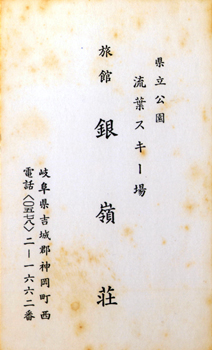 県立公園
流葉スキー場
旅館 銀嶺荘
岐阜県吉城郡神岡町西
電話〈〇五七八〉二―一六六二番